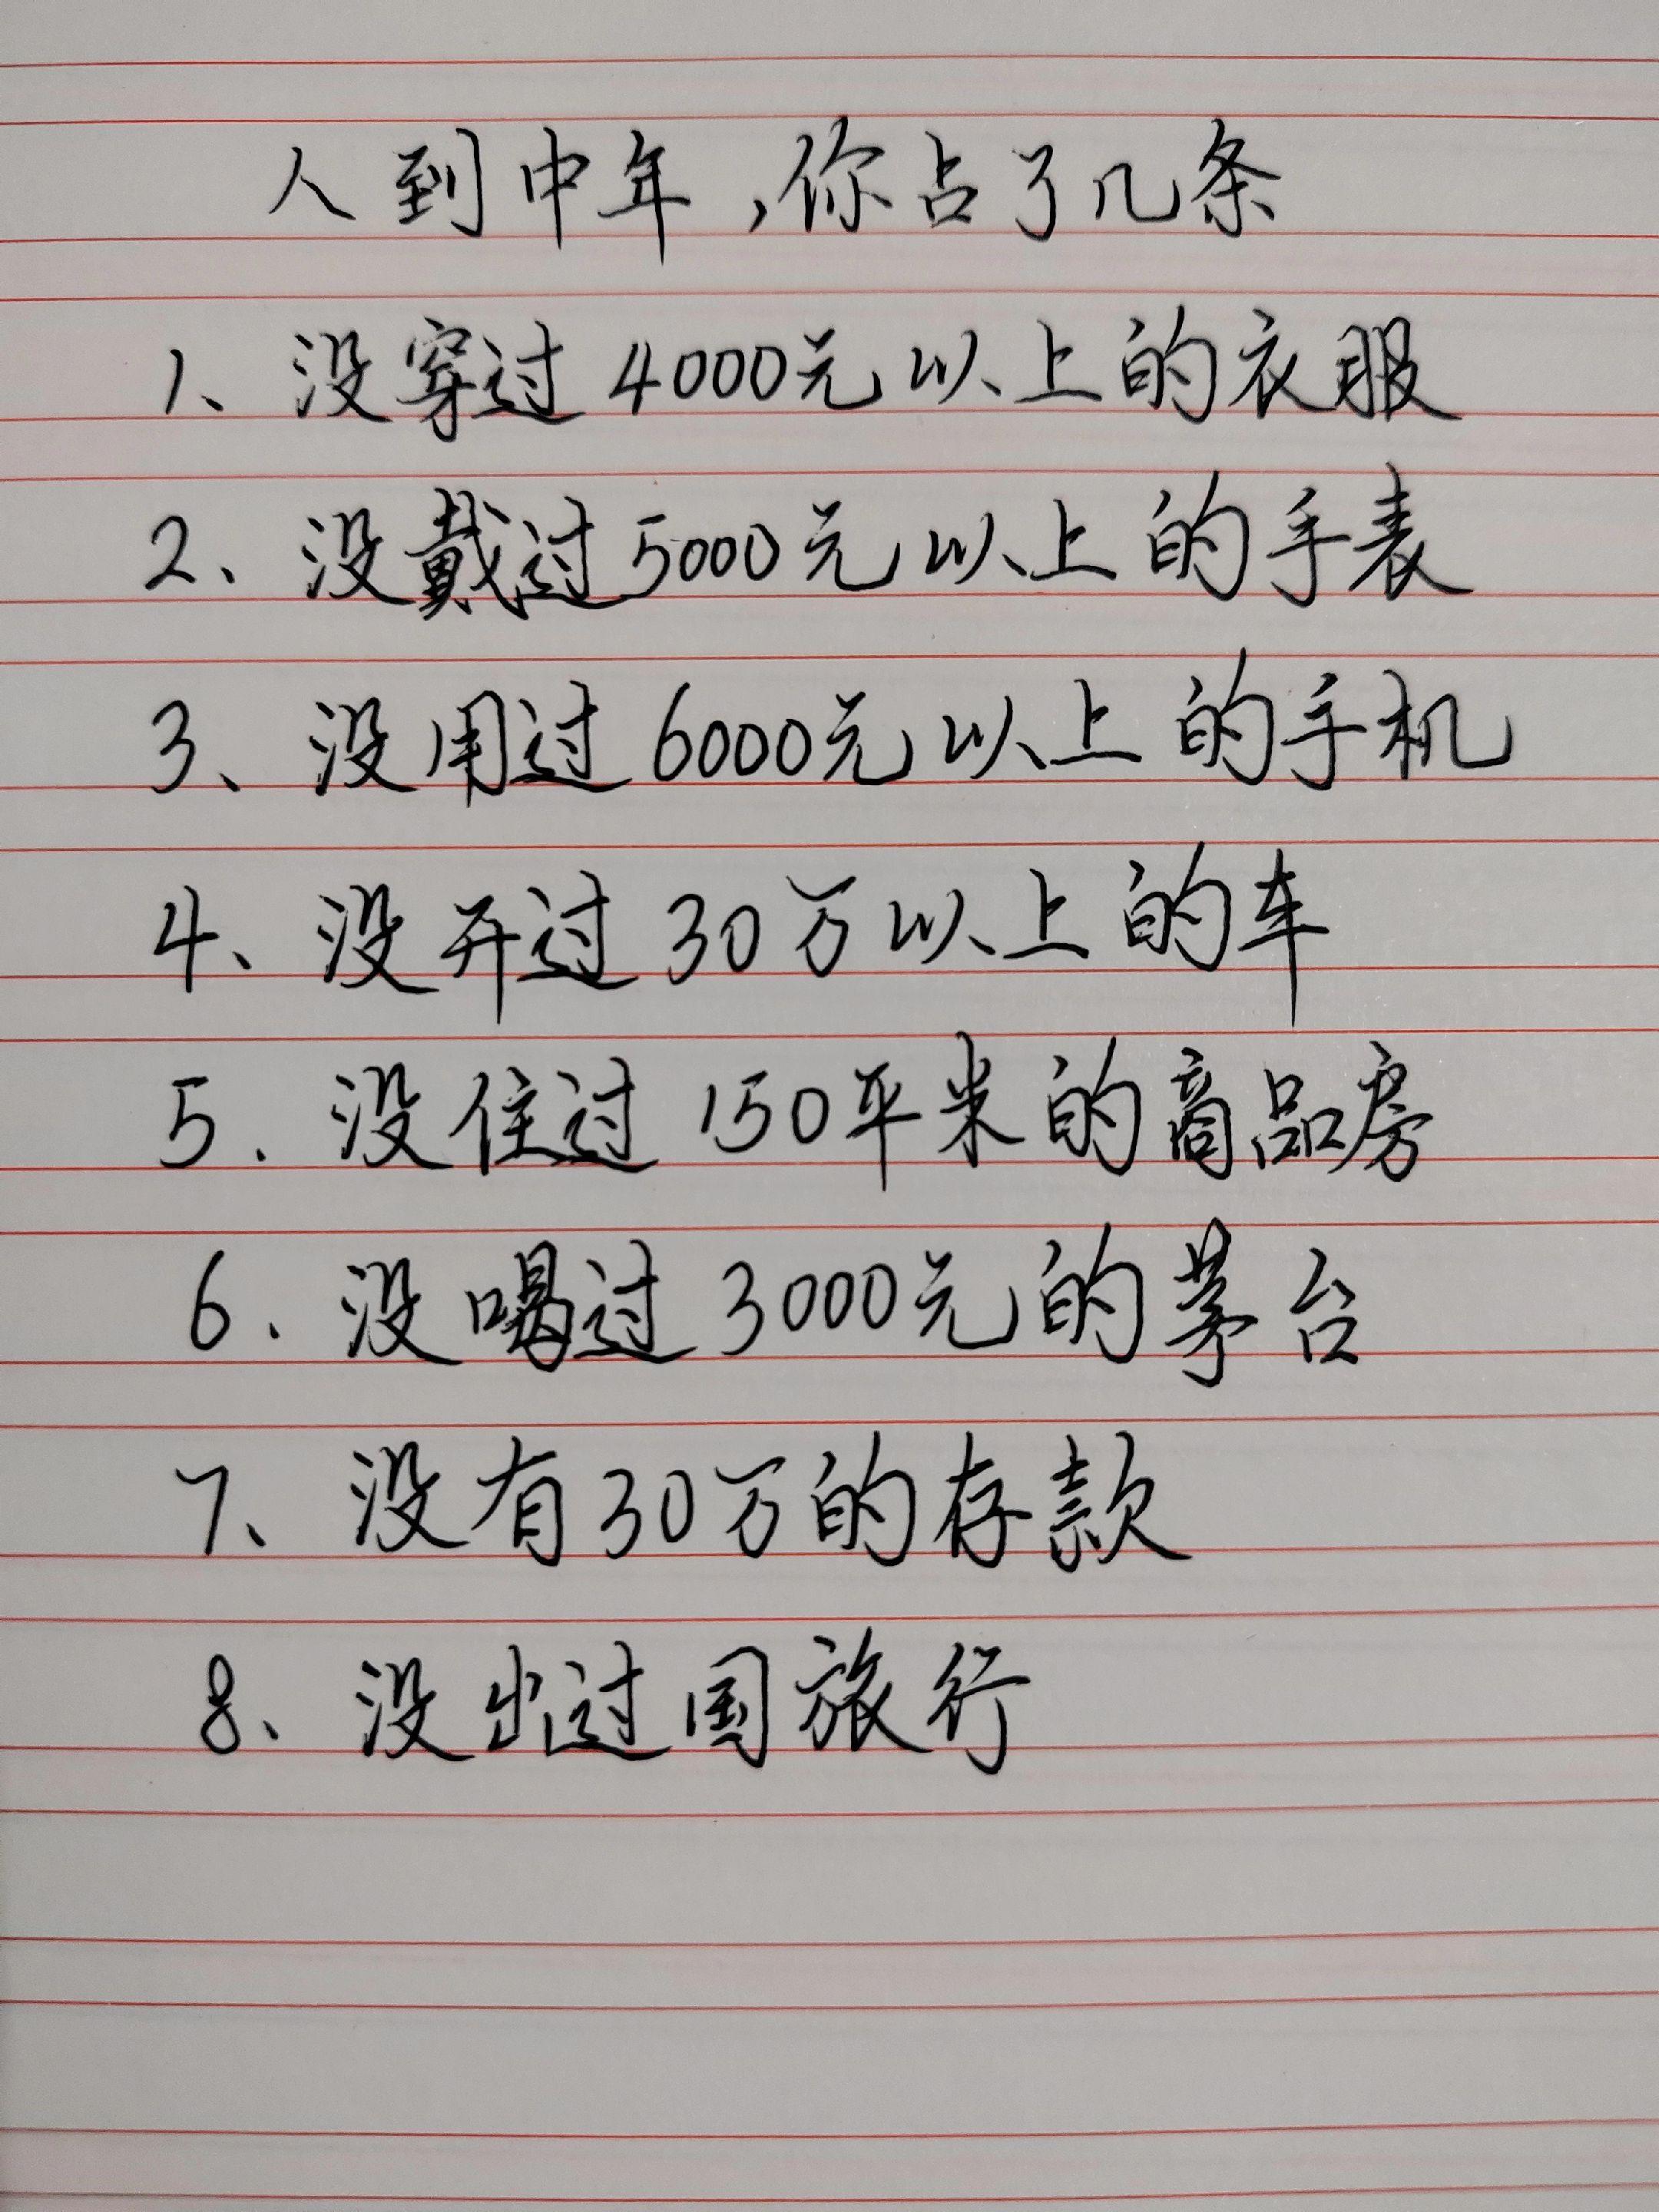 人到中年,你占了几条
1、没穿过4000元以上的衣服
2、没戴过5000元以上的手表
3、没用过6000元以上的手机
4、没开过30万以上的车
5、没住过150平米的商品房
6、没喝过3000元的茅台
7、没有30万的存款
8、没出过国旅行